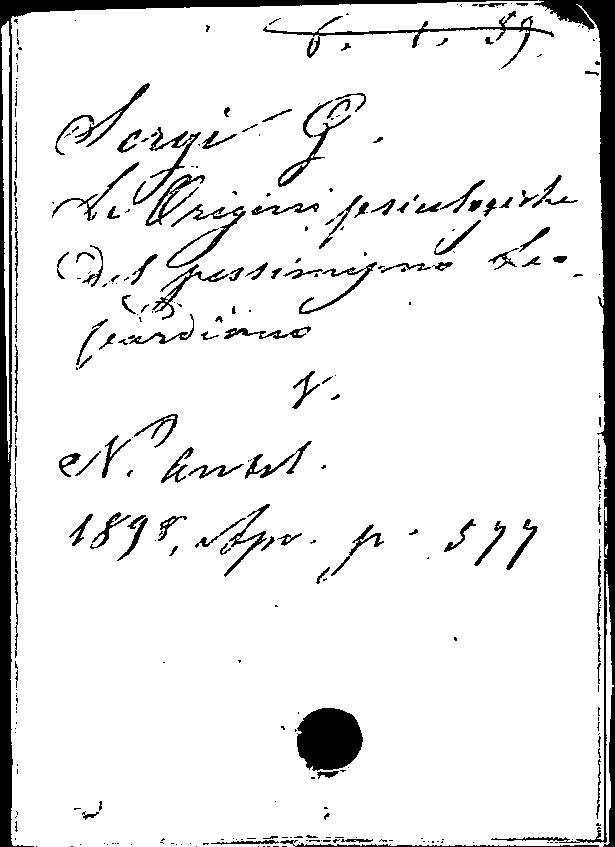 6. 1. 39
Sergi G.
Le Origini psicologiche
del pessimismo Leo-
pardiano
V.
N. Antol.
1898, Apr. p. 577